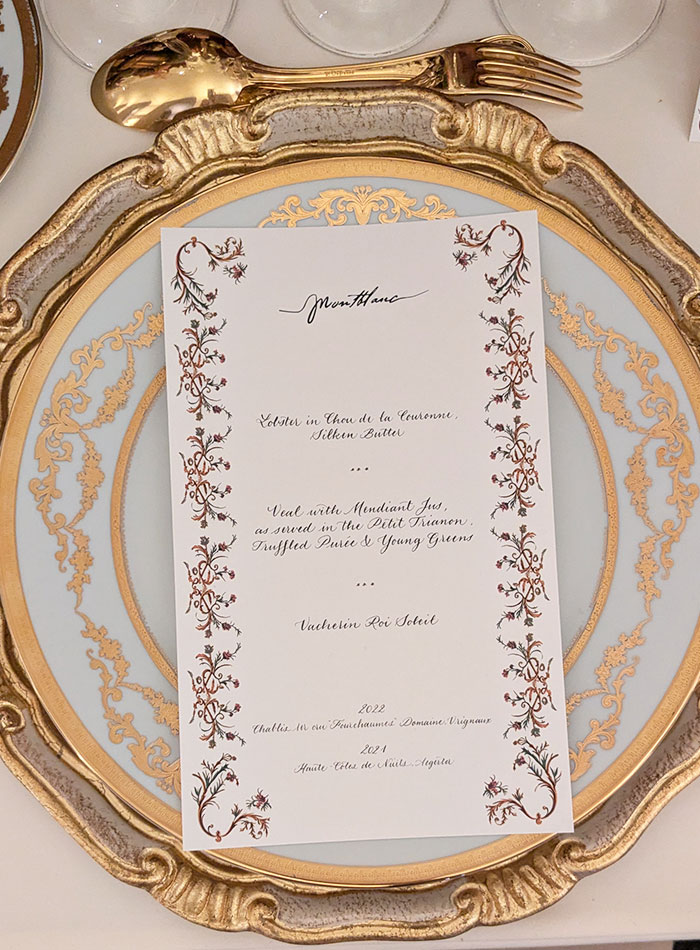 Montblanc
Lobster in Chou de la Couronne,
Silken Butter
...
Veal with Mendiant Jus,
as served in the Petit Trianon,
Truffled Purée & Young Greens
...
Vacherin Roi Soleil
2022
Chablis 1er cru "Fourchaumes" Domaine Vrignaux
2021
Haute Côtes de Nuits,